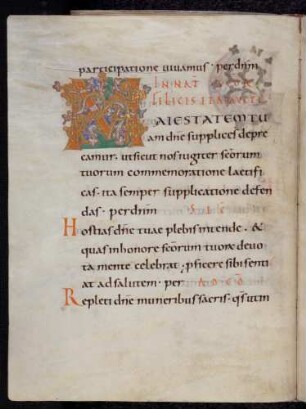 participatione uiuamus · per dnm
IN NAT
FELICIS
MAIESTATEM TU
am dne supplices depre
camur · ut sicut nos iugiter scorum
tuorum commemoratione laetifi
cas · ita semper supplicatione defen
das · per dnm S I C
Hostias dne tuae plebis intende · &
quas in honore scorum tuorum deuo
ta mente celebrat ; pficere sibi senti
at ad salutem · per A D C O
Repleti dne muneribus sacris · qs ut in